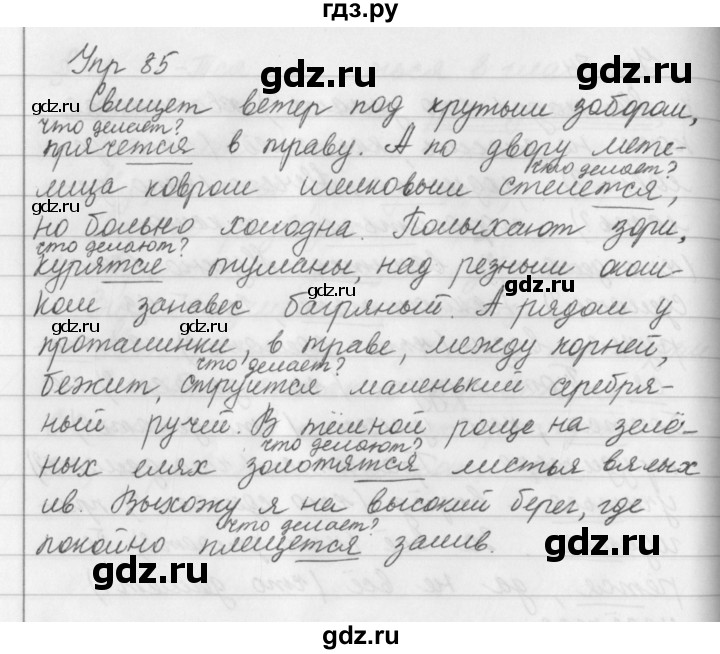 гдз.ру
Упр 85
gdz.ru
gdz.ru
gdz.ru
Свищет ветер под крутым забором,
что делает?
прячется в траву. А по двору мете-
что делает?
лица ковром шелковым стелется,
gdz.ru
gdz.ru
но больно холодна. Полыхают зори,
что делают?
курятся туманы, над резным окош-
gdz.ru
gdz.ru
ком занавес багряный. А рядом у
gdz.ru
gdz.ru
проталинки, в траве, между корней,
что делает?
бежит, струится маленький серебря-
ный ручей. В тёмной роще, на зелё-
что делают?
ных елях золотятся листья вялых
ив. Выхожу я на высокий берег, где
что делает?
покойно плещется залив.
gdz.ru
gdz.ru
gdz.ru